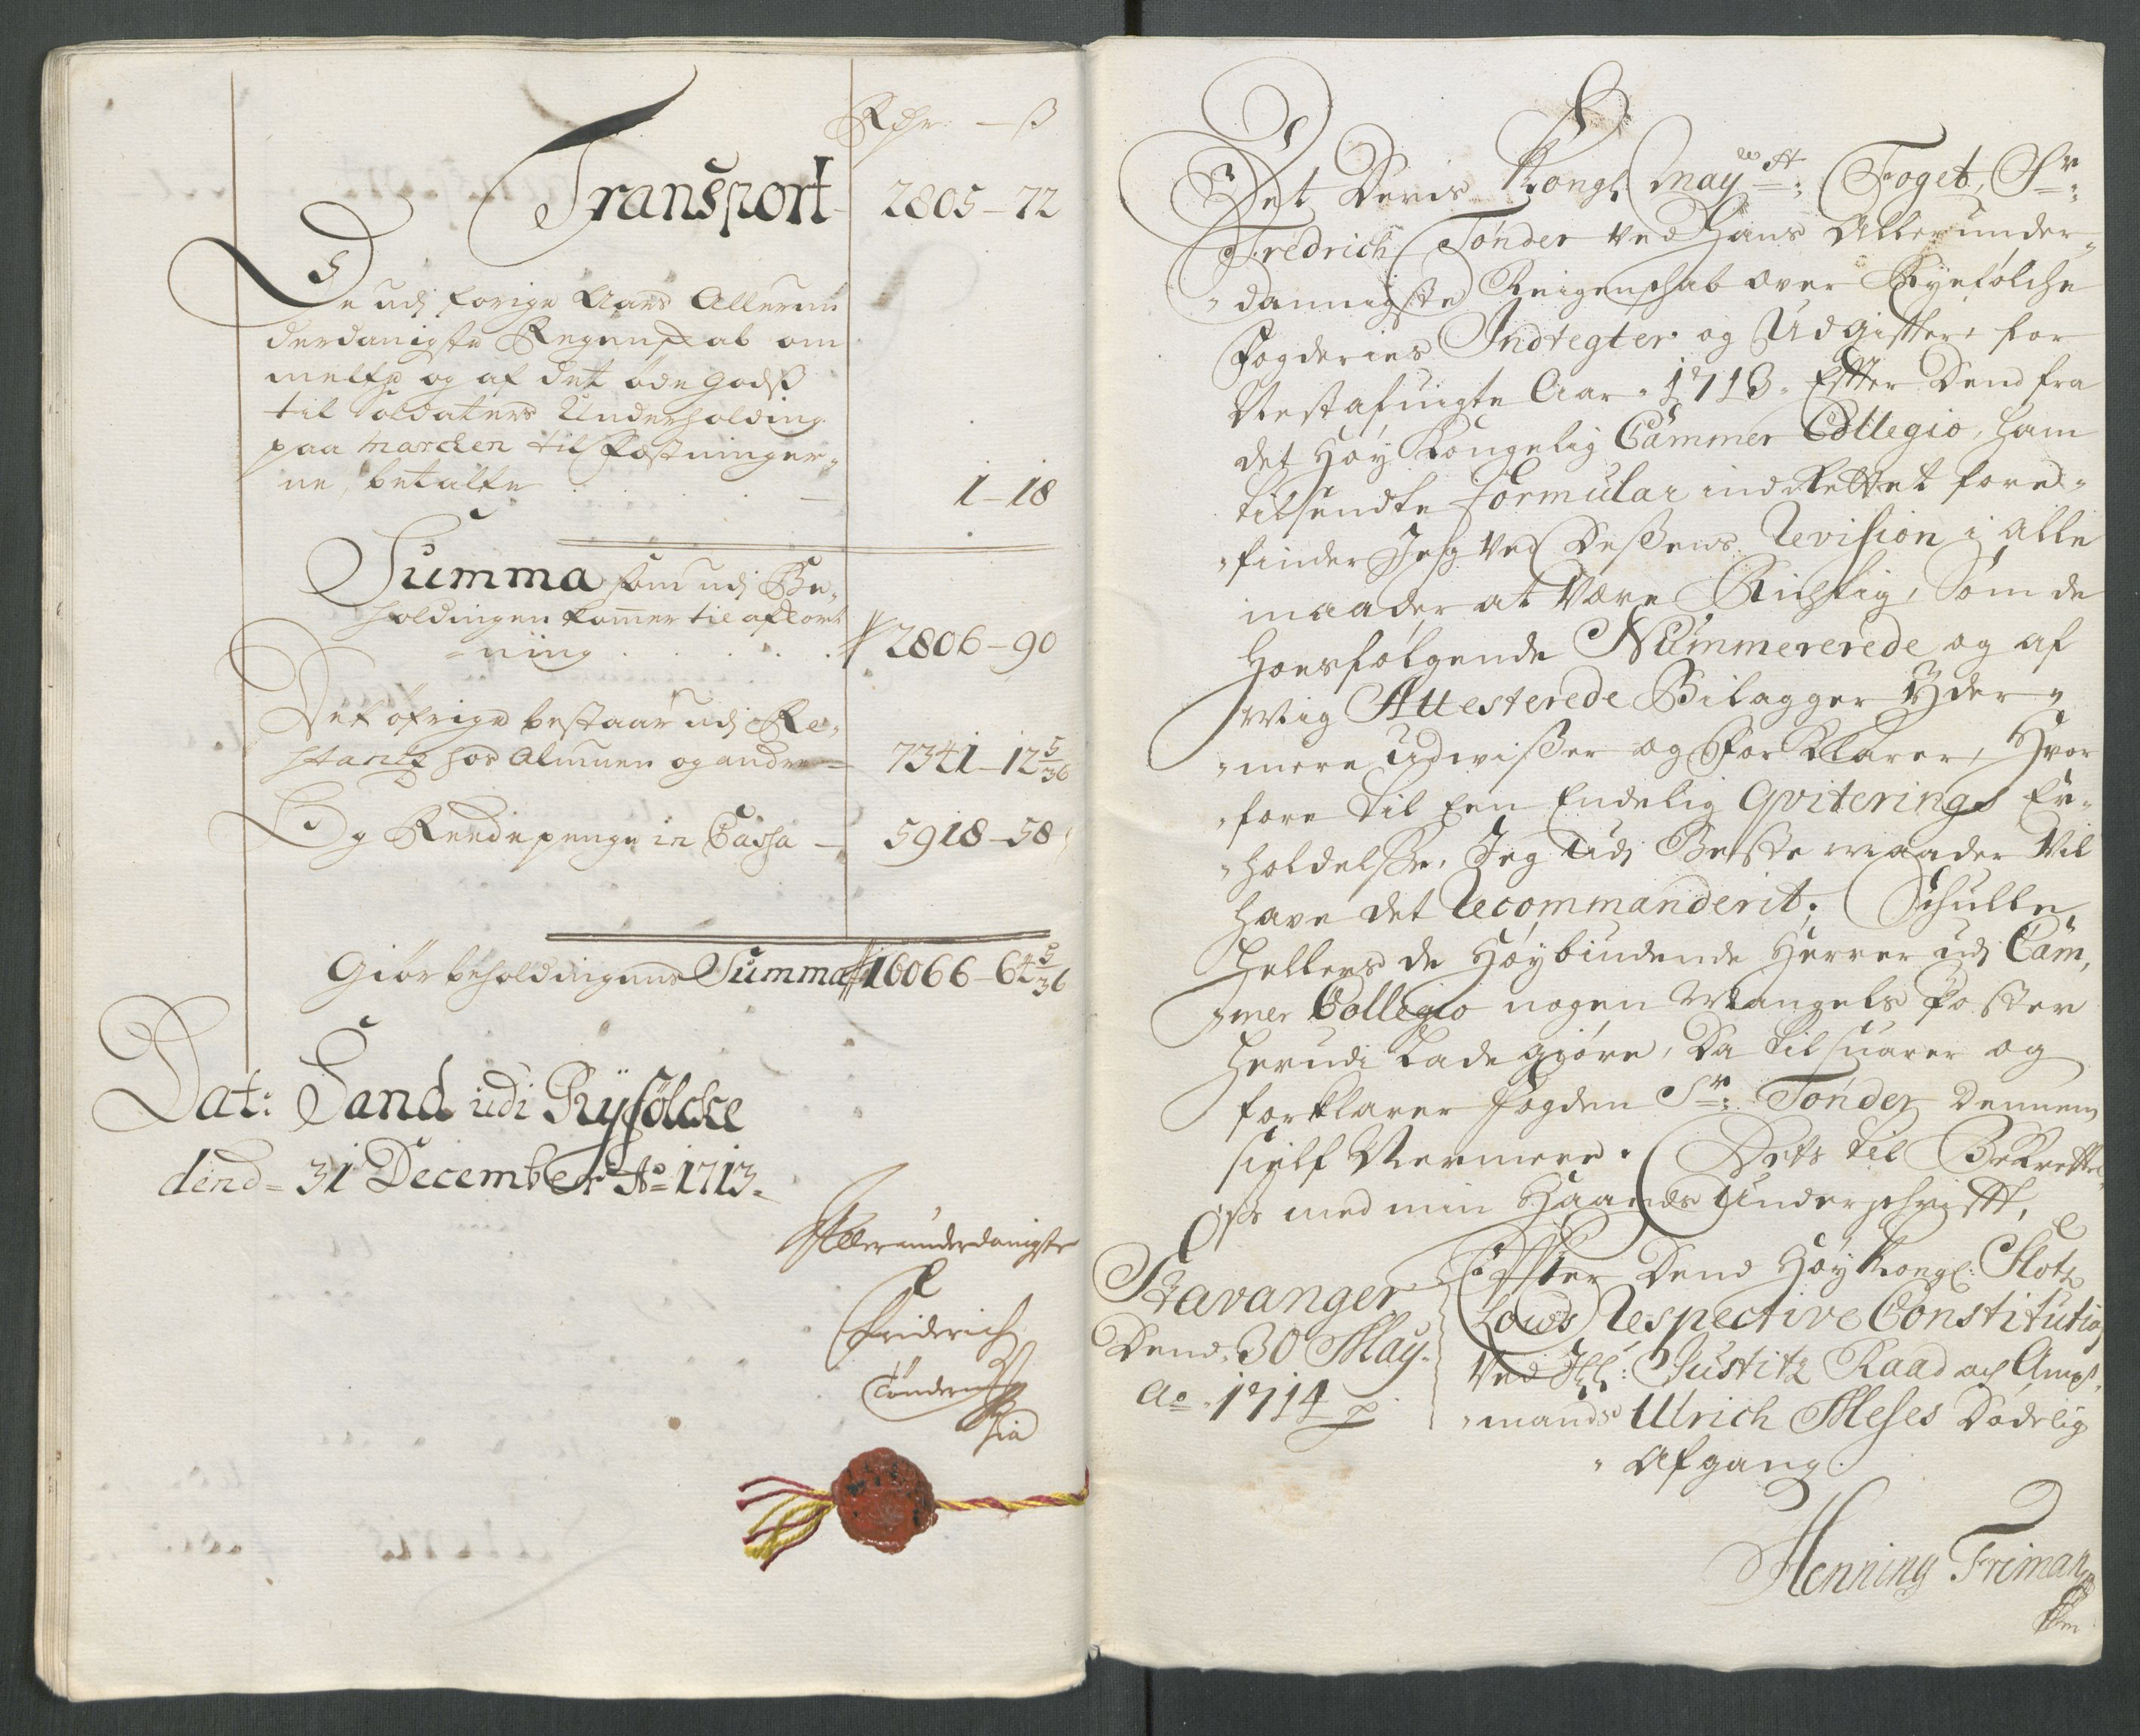 Rdr — ß
Transport 2805 - 72
De udj forige Aars Allerun
derdanigste Regenskab om
melte og af det øde Godß
til Soldaters Underholding
paa Marchen til Fæstninger-
ne, betalte . . . . — 1 - 18
Summa som udj Be-
holdingen kommer til afkort
-ning . . . . . 2806 - 90
Det öfrige bestaar udj Re-
stantz hos Almuen og andre — 7341 - 12 5/36
Og Reede penge in Cassa — 5918 - 58
Giör beholdingens Summa 16066 - 64 5/36
Dat: Sand udi Ryfölcke
dend 31 December Ao 1713.
Allerunderdanigste
Friderich
Tönder
Det Deris Kongl: Mayts: Foget, Sr:
Fredrich Tönder ved Hans Allerunder-
-dannigste Reigenschab over Ryefölche
Fogderies Indtegter og Udgiffter, for
Nestafuigte Aar 1713. Effter Dend fra
det Höy Kongelig Cammer Collegio, ham
tilsendte Formular indRettet fore-
-finder Jeg ved Deßens Revision i alle
maader at Være Richtig, Som de
Hoesfølgende Nümmererede og af
Mig Attesterede Bilagger Yder-
-mere Udwißer og ForKlarer, Hvor
-fore til Een Endelig Qviterings Er-
-holdelße, Jeg Udj Beste maader Vil
have det Recommanderit; Schulle
Hellers de Höybiudende Herrer udj Cam-
-mer Collegio nogen Mangels Poster
Herudi Lade giøre, Da tilsuarer og
forklarer Fogden Sr: Tönder Dennem
sielf Nermere. Dets til Bekrefftel-
ße med min Haands Underschrifft,
Stavanger
Dend. 30 May.
Ao 1714
Effter Dend Höy Kongl: Slotz
Lows Respective Constitution
Ved Hl: Justitz Raad och Ampt-
-mands Ulrich Meses Dödelig
Afgang.
Henning Friman